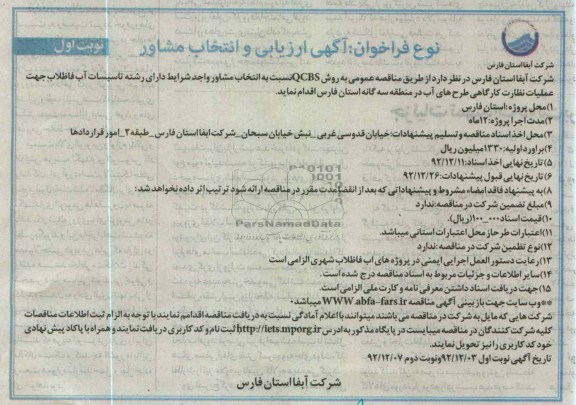 نوبت اول
نوع فراخوان: آگهی ارزیابی و انتخاب مشاور
شرکت آبفا استان فارس
شرکت آبفا استان فارس در نظر دارد از طریق مناقصه عمومی به روش QCBS نسبت به انتخاب مشاور واجد شرایط دارای رشته تاسیسات آب فاظلاب جهت
عملیات نظارت کارگاهی طرح های آب در منطقه سه گانه استان فارس اقدام نماید.
۱) محل پروژه: استان فارس
۲) مدت اجرا پروژه: ۱۲ماه
۳) محل اخذ اسناد مناقصه و تسلیم پیشنهادات: خیابان فدوسی غربی _ نبش خیابان سبحان _ شرکت ابفا استان فارس _ طبقه ۲_امور قراردادها
۴) براورد اولیه: ۱۳۳۰میلیون ریال
۵) تاریخ نهایی اخذ اسناد: ۹۲/۱۲/۱۱
۶) تاریخ نهایی قبول پیشنهادات: ۹۲/۱۲/۲۶
۸) به پیشنهاد فاقد امضاء مشروط و پیشنهاداتی که بعد از انقضا مدت مقرر در مناقصه ارائه شود ترتیب اثر داده نخواهد شد؛
۹) مبلغ تضمین شرکت در مناقصه: ندارد
۱۰) قیمت اسناد ۱۰۰_۰۰۰ (ریال).
۱۱) اعتبارات طرح از محل اعتبارات استانی میباشد.
۱۲) نوع تظمین شرکت در مناقصه: ندارد
۱۳) رعایت دستور العمل اجرایی ایمنی در پروژه های اب فاظلاب شهری الزامی است
۱۴) سایر اطلاعات و جزئیات مربوط به اسناد مناقصه درج شده است.
۱۵) جهت دریافت اسناد داشتن معرفی نامه و کارت ملی الزامی است.
**وب سایت جهت بازبینی آگهی مناقصه WWW abfa-fars.ir میباشد*
شرکت هایی که مایل به شرکت در مناقصه می باشند میتوانند با اعلام آمادگی نسبت به دریافت مناقصه اقدام نمایند با توجه به الزام ثبت اطلاعات مناقصات
کلیه شرکت کنندگان در مناقصه میبایست در پایگاه مذکور به ادرس http://iets.mporg.ir ثبت نام و کد کاربری دریافت نمایند و همراه با پاکاد پیش نهادی
خود کد کاربری را نیز تحویل نمایند.
تاریخ آگهی نوبت اول ۹۲/۱۲/۰۳ و نوبت دوم ۹۲/۱۲/۰۷
شرکت آبفا استان فارس
ParsNamadData